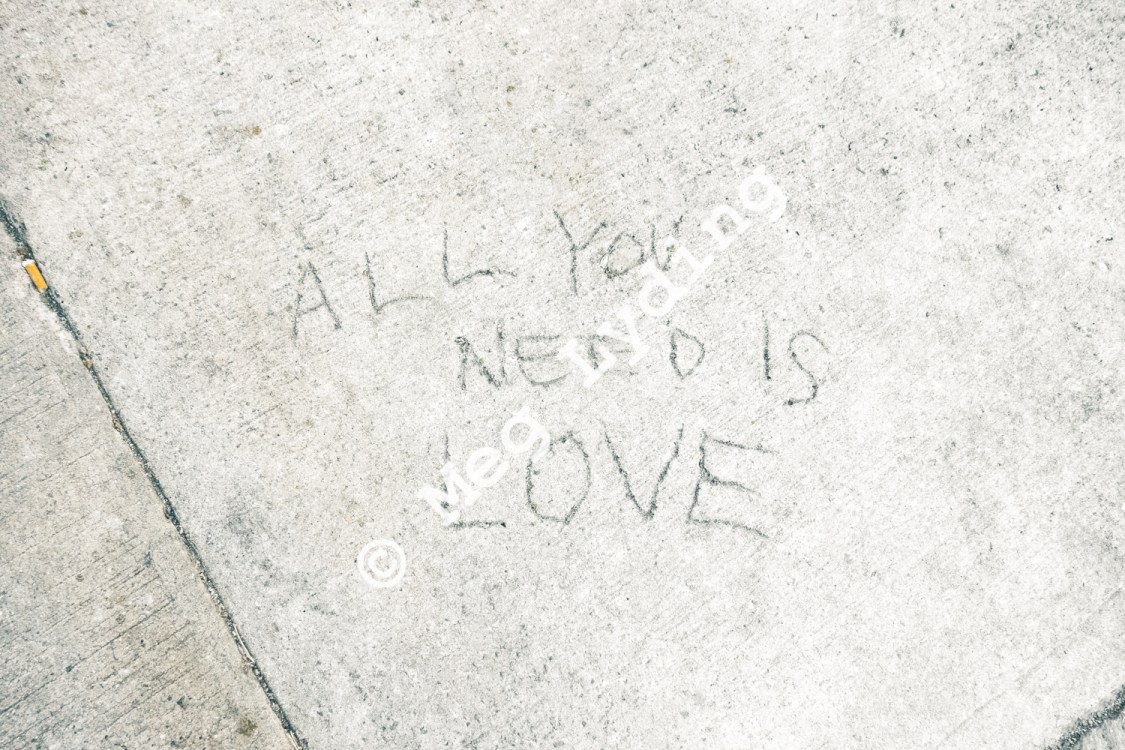 ALL YOU
NEED IS
LOVE
© Meg Lyding